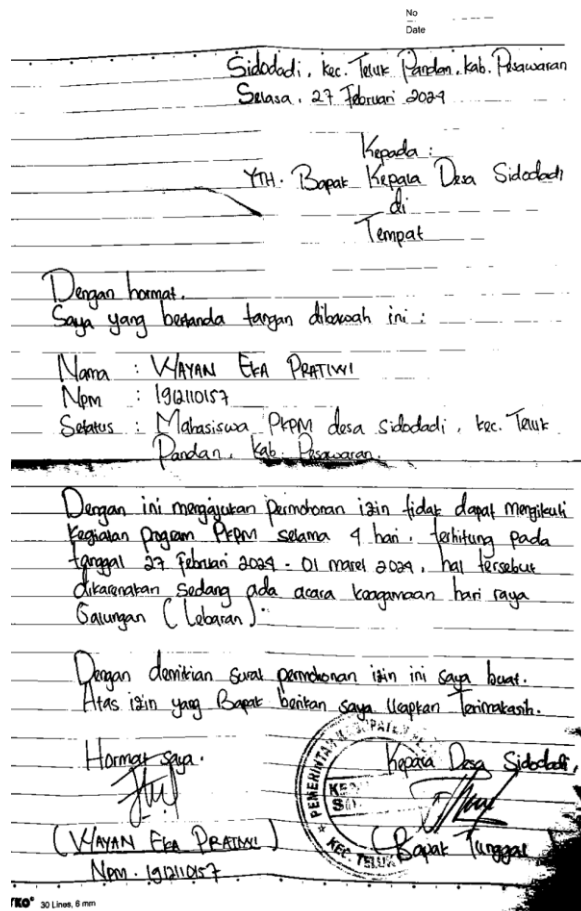 No
Date
Sidodadi, kec. Teluk Pandan, kab. Pesawaran
Selasa, 27 Februari 2024
Kepada :
YTH. Bapak Kepala Desa Sidodadi
di
Tempat
Dengan hormat,
Saya yang bertanda tangan dibawah ini :
Nama : WAYAN EKA PRATIWI
Npm : 1912110157
Setatus : Mahasiswa PKPM desa sidodadi, kec. Teluk
Pandan, Kab. Pesawaran.
Dengan ini mengajukan permohonan izin tidak dapat mengikuti
kegiatan program PKPM selama 4 hari, terhitung pada
tanggal 27 Februari 2024 - 01 maret 2024, hal tersebut
dikarenakan sedang ada acara keagamaan hari raya
Galungan (Lebaran).
Dengan demikian surat permohonan izin ini saya buat.
Atas izin yang Bapak berikan saya Ucapkan Terimakasih.
Hormat saya.
Kepala Desa Sidodadi,
PEMERINTAH KABUPATEN
KEC. TELUK
(WAYAN EKA PRATIWI)
(Bapak Tunggal
Npm. 1912110157
30 Lines, 6 mm